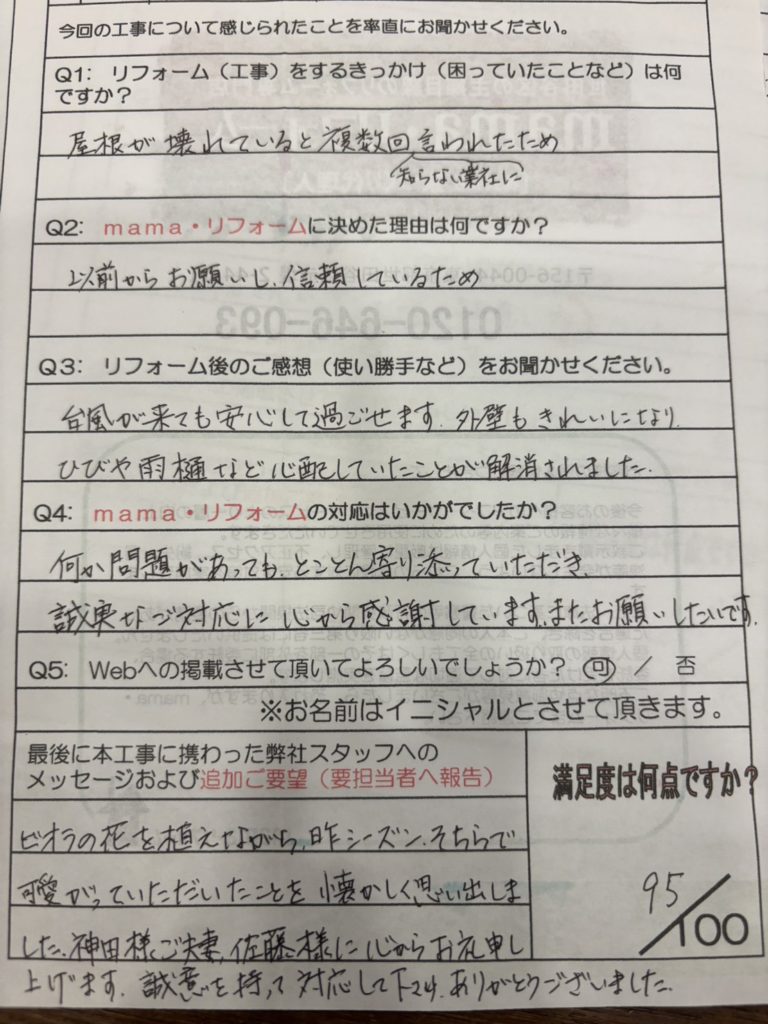 今回の工事について感じられたことを率直にお聞かせください。
Q1: リフォーム（工事）をするきっかけ（困っていたことなど）は何
ですか？
屋根が壊れていると複数回言われたため
知らない業社に
Q2: mama・リフォームに決めた理由は何ですか？
以前からお願いし、信頼しているため
Q3: リフォーム後のご感想（使い勝手など）をお聞かせください。
台風が来ても安心して過ごせます。外壁もきれいになり、
ひびや雨樋など心配していたことが解消されました。
Q4: mama・リフォームの対応はいかがでしたか？
何か問題があっても、とことん寄り添っていただき、
誠実なご対応に心から感謝しています。またお願いしたいです。
Q5: Webへの掲載させて頂いてよろしいでしょうか？ 可 / 否
※お名前はイニシャルとさせて頂きます。
最後に本工事に携わった弊社スタッフへの
メッセージおよび追加ご要望（要担当者へ報告）
ビオラの花を植えながら、昨シーズン、そちらで
可愛がっていただいたことを懐かしく思い出しま
した。神田様ご夫妻、佐藤様に心からお礼申し
上げます。誠意を持って対応して下さり、ありがとうございました。
満足度は何点ですか？
95/100
0120-646-093